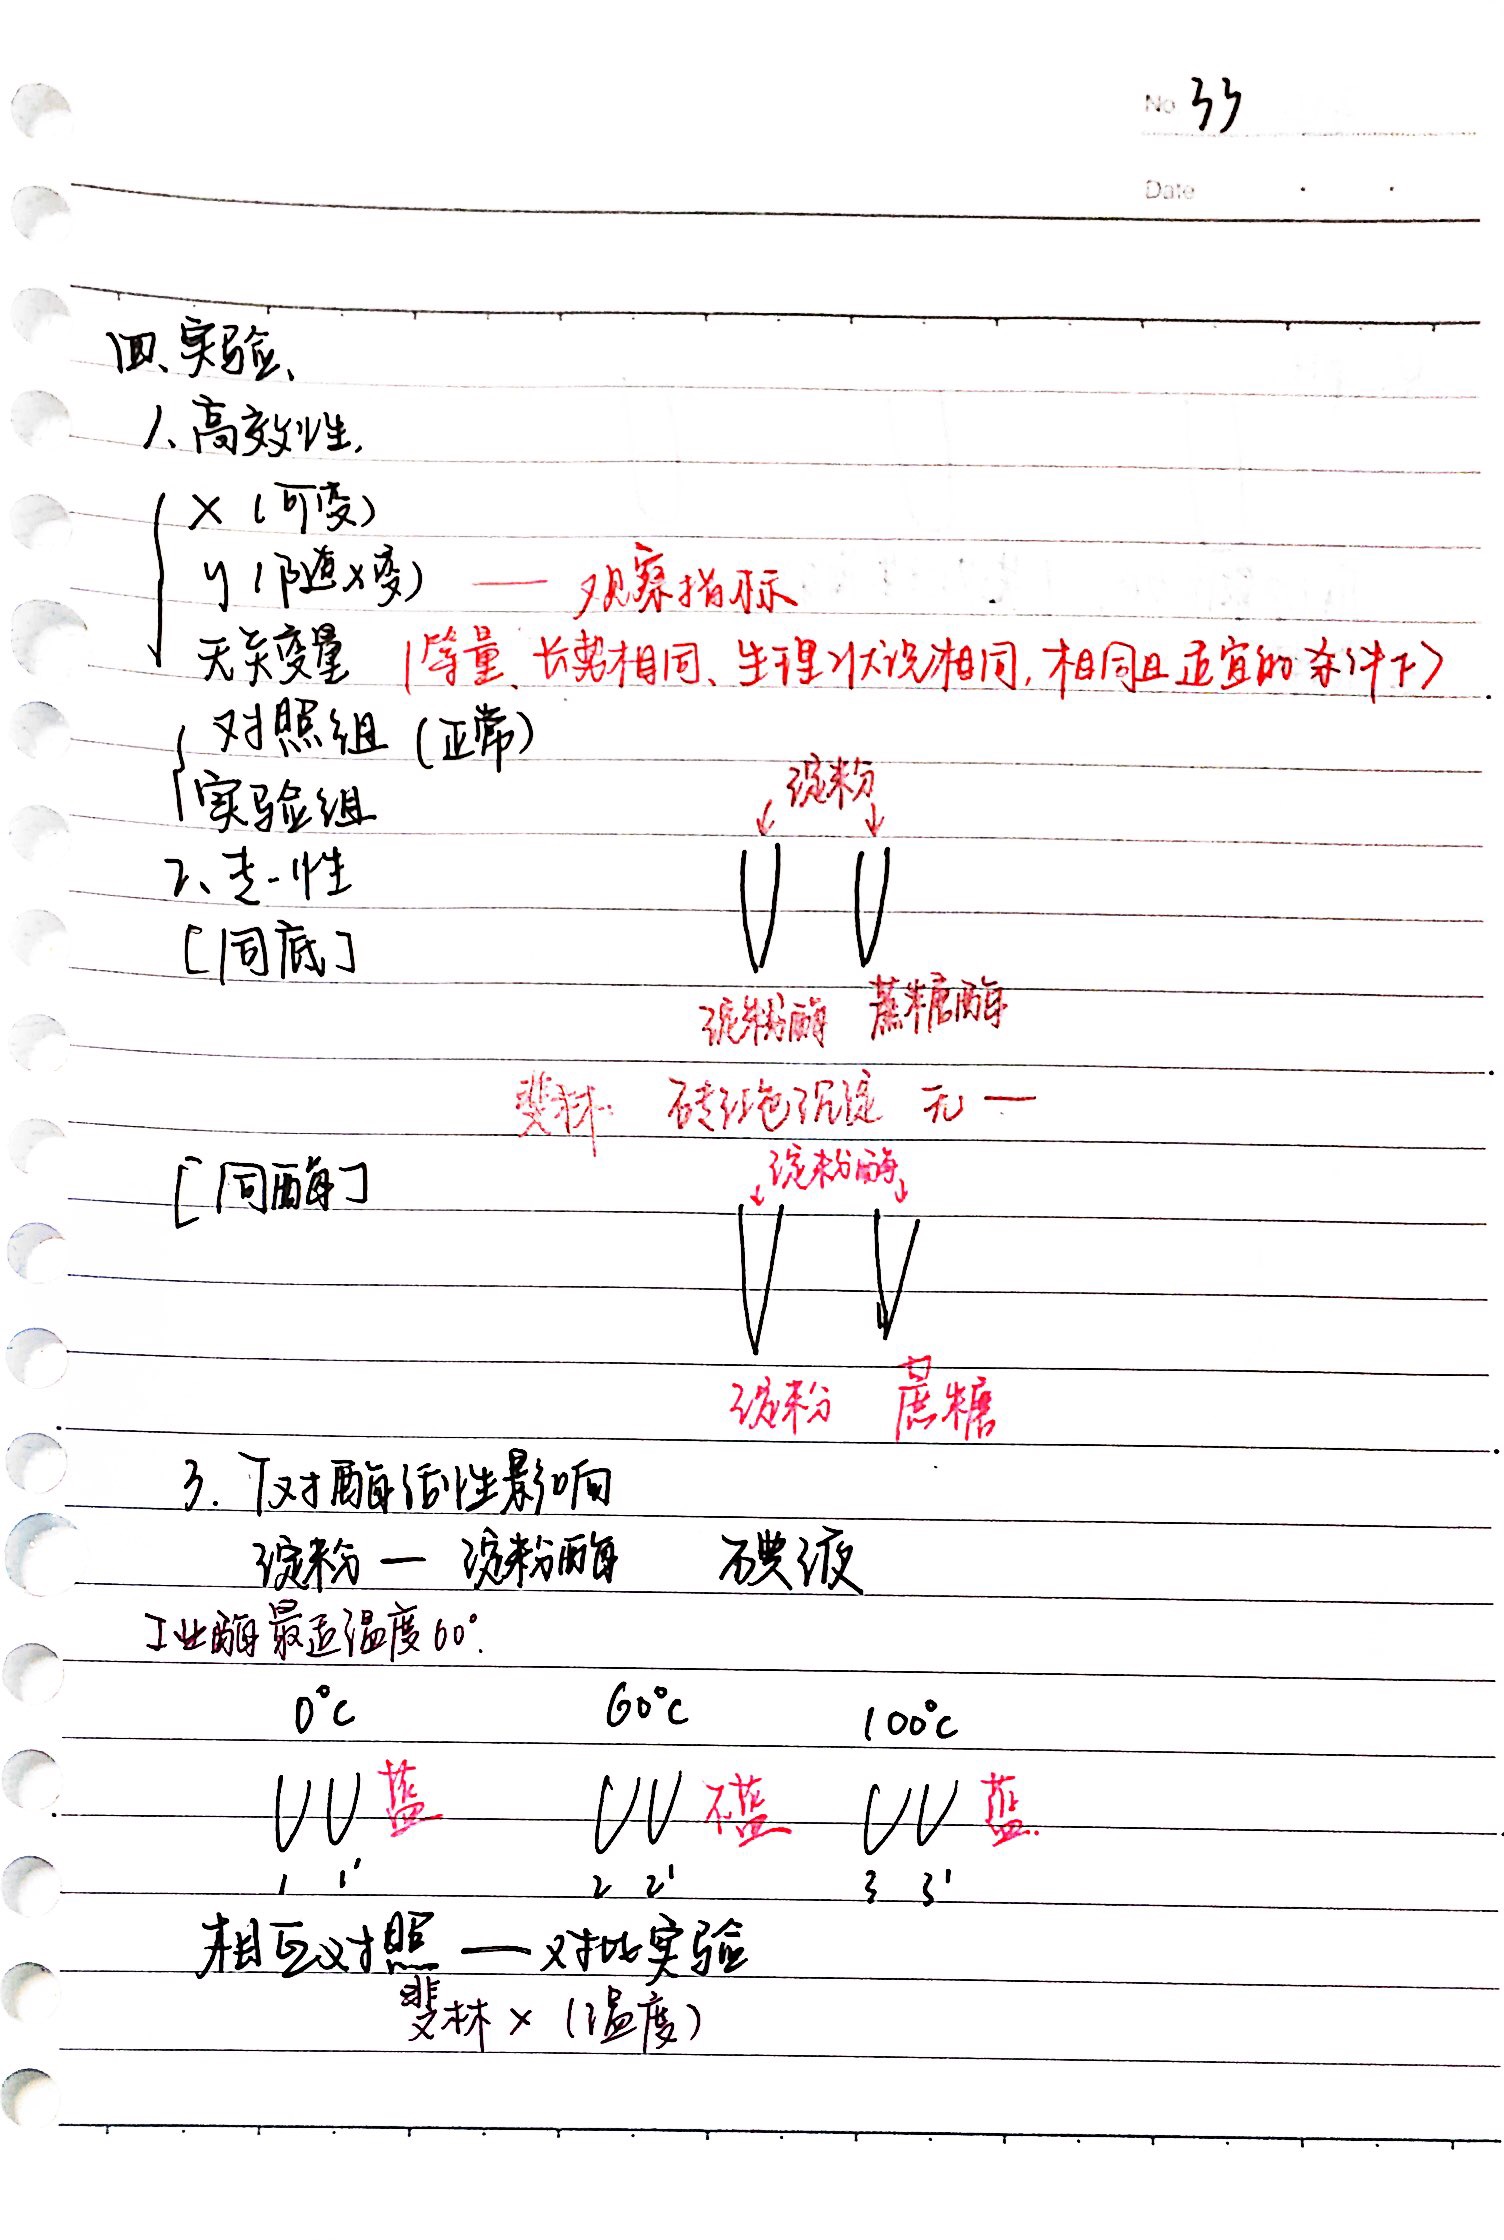 No 33
Date
四、实验、
1、高效性.
X (可变)
y (随X变) — 观察指标
无关变量 (等量、长势相同、生理状况相同, 相同且适宜的条件下)
对照组 (正常)
实验组
淀粉
2、专一性
[同底]
淀粉酶 蔗糖酶
斐林. 砖红色沉淀 无 —
淀粉酶
[同酶]
淀粉 蔗糖
3. T对酶活性影响
淀粉 — 淀粉酶 碘液
工业酶最适温度60°.
0°C 60°C 100°C
蓝 不蓝 蓝.
1 1' 2 2' 3 3'
相互对照 — 对比实验
斐林 × (温度)